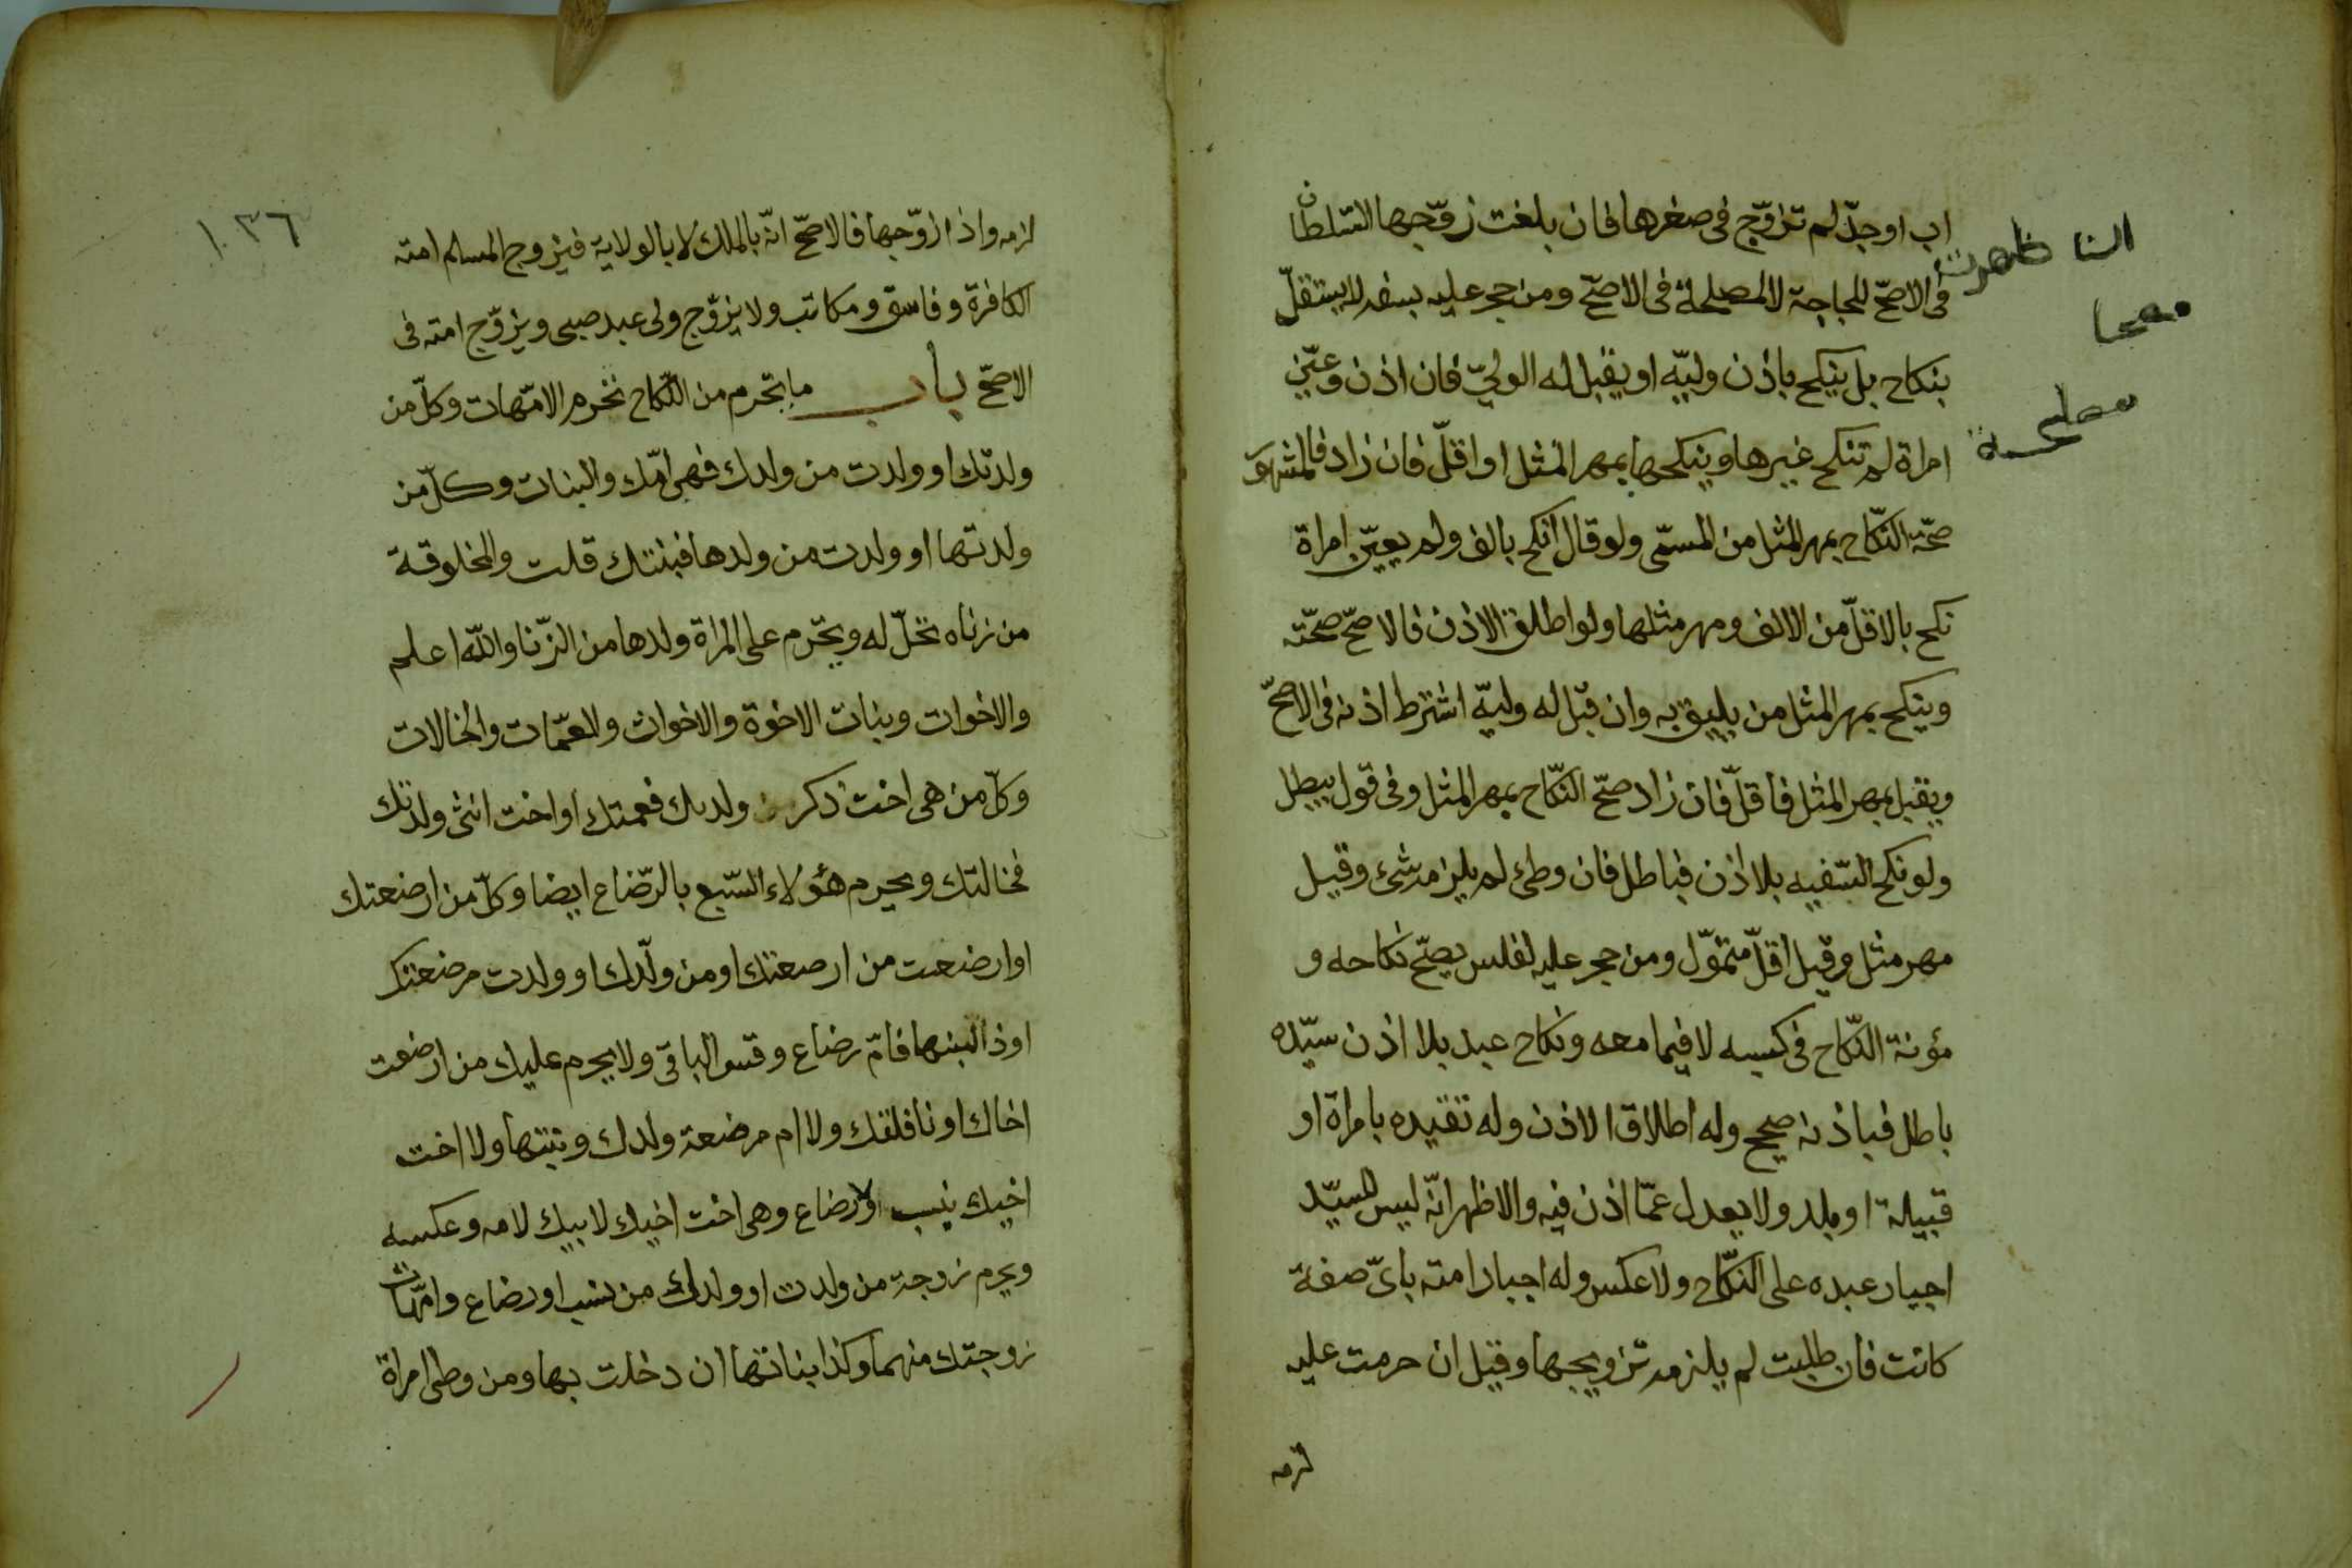 اب او جدّ لم تزوّج فى صغرها فان بلغت زوّجها السّلطان
فى الاصحّ للحاجة لا لمصلحة فى الاصحّ ومن حجر عليه بسفه لا يستقلّ
بنكاح بل ينكح باذن وليّه او يقبل له الوليّ فان اذن وعيّن
امراة لم تنكح غيرها وينكحها بمهر المثل او اقلّ فان زاد فالمشهور
صحّة النّكاح بمهر المثل من المسمّى ولو قال انكح بالف ولم يعيّن امراة
نكح بالاقلّ من الالف ومهر مثلها ولو اطلق الاذن فالاصحّ صحّته
وينكح بمهر المثل من يليق به وان قبل له وليّه اشترط اذنه فى الاصحّ
ويقبل بمهر المثل فاقلّ فان زاد صحّ النّكاح بمهر المثل وفى قول يبطل
ولو نكح السّفيه بلا اذن فباطل فان وطئ لم يلزمه شئ وقيل
مهر مثل وقيل اقلّ متموّل ومن حجر عليه لفلس يصحّ نكاحه و
مؤنة النّكاح فى كسبه لا فيما معه ونكاح عبد بلا اذن سيّده
باطل فباذنه صحيح وله اطلاق الاذن وله تقيده بامراة او
قبيلة او بلد ولا يعدل عمّا اذن فيه والاظهر انّه ليس للسيّد
اجبار عبده على النّكاح ولا عكس وله اجبار امته باىّ صفة
كانت فان طلبت لم يلزمه تزويجها وقيل ان حرمت عليه
لزمه
ظهرت
مصلحة
١٠٣٦
لزمه واذا زوّجها فالاصحّ انّه بالملك لا بالولاية فيزوج المسلم امته
الكافرة وفاسق ومكاتب ولا يزوّج ولى عبد صبى ويزوّج امته فى
الاصحّ باب ما يحرم من النّكاح تحرم الامّهات وكلّ من
ولدتك او ولدت من ولدك فهى امّك والبنات وكلّ من
ولدتها او ولدت من ولدها فبنتك قلت والمخلوقة
من زناه تحلّ له ويحرم على المراة ولدها من الزّنا والله اعلم
والاخوات وبنات الاخوة والاخوات والعمّات والخالات
وكلّ من هى اخت ذكر ولدك فعمتك او اخت انثى ولدتك
فخالتك ويحرم هؤلاء السّبع بالرّضاع ايضا وكلّ من ارضعتك
او ارضعت من ارضعتك او من ولّدك او ولدت مرضعتك
او ذا لبنها فامّ رضاع وقس الباقى ولا يحرم عليك من ارضعت
اخاك او نافلتك ولا ام مرضعة ولدك وبنتها ولا اخت
اخيك بنسب ولا رضاع وهى اخت اخيك لابيك لامه وعكسه
ويحرم زوجة من ولدت او ولدك من نسب او رضاع وامّهات
زوجتك منهما وكذا بناتها ان دخلت بها ومن وطئ امراة